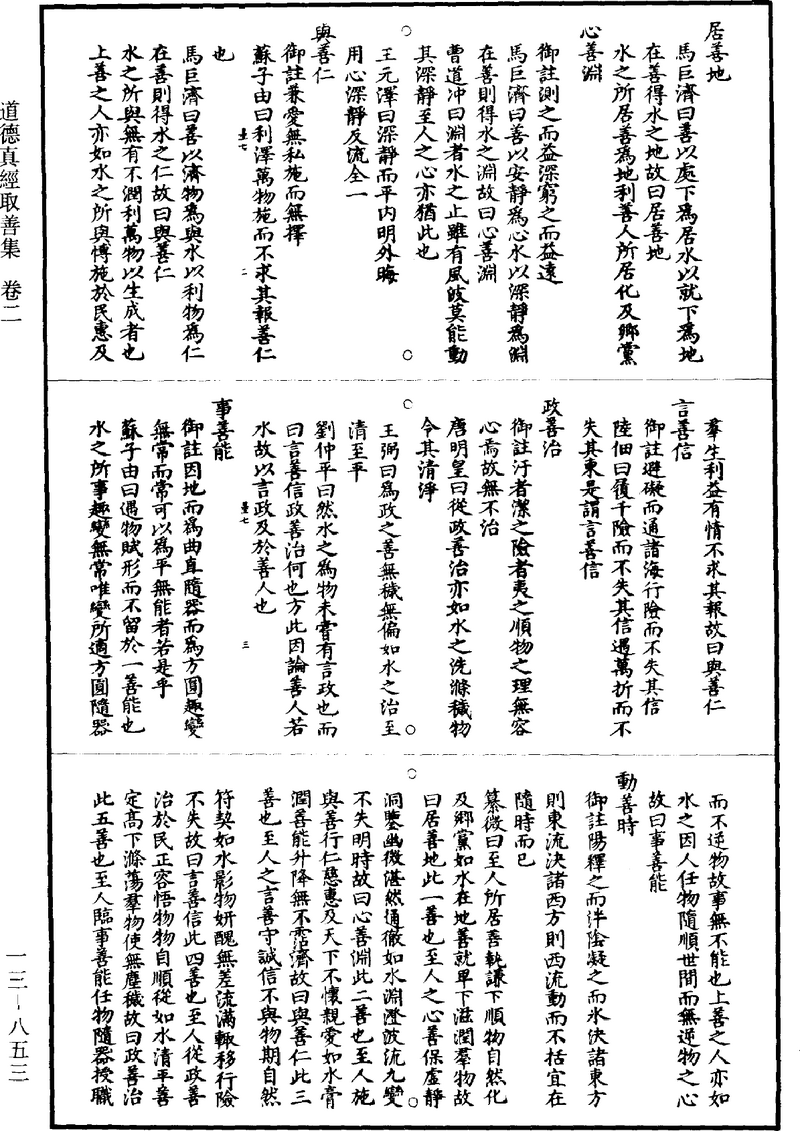 道德真經取善集　卷二
居善地
馬巨濟曰善以處下為居水以就下為地
在善得水之地故曰居善地
水之所居善為地利善人所居化及鄉黨
心善淵
御註測之而益深窮之而益遠
馬巨濟曰善以安靜為心水以深靜為淵
在善則得水之淵故曰心善淵
曹道冲曰淵者水之止雖有風波莫能動
其深靜至人之心亦猶此也
王元澤曰深靜而平內明外晦
用心深靜反流全一
與善仁
御註兼愛無私施而無擇
蘇子由曰利澤萬物施而不求其報善仁
也
馬巨濟曰善以濟物為與水以利物為仁
在善則得水之仁故曰與善仁
水之所與無有不潤利萬物以生成者也
上善之人亦如水之所與愽施於民惠及
羣生利益有情不求其報故曰與善仁
言善信
御註避礙而通諸海行險而不失其信
陸佃曰履千險而不失其信遇萬折而不
失其東是謂言善信
政善治
御註汙者潔之險者夷之順物之理無容
心焉故無不治
唐明皇曰從政善治亦如水之洗滌穢物
令其清淨
王弼曰為政之善無穢無偏如水之治至
清至平
劉仲平曰然水之為物未嘗有言政也而
曰言善信政善治何也方此因論善人若
水故以言政及於善人也
事善能
御註因地而為曲直隨器而為方圓趣變
無常而常可以為平無能者若是乎
蘇子由曰遇物賦形而不留於一善能也
水之所事趣變無常唯變所適方圓隨器
而不逆物故事無不能也上善之人亦如
水之因人任物隨順世間而無逆物之心
故曰事善能
動善時
御註陽釋之而泮陰凝之而氷決諸東方
則東流決諸西方則西流動而不括宜在
隨時而已
纂微曰至人所居善執謙下順物自然化
及鄉黨如水在地善就卑下滋潤羣物故
曰居善地此一善也至人之心善保虛靜
洞鑒幽微湛然通徹如水淵澄波流九變
不失明時故曰心善淵此二善也至人施
與善行仁慈惠及天下不懷親愛如水膏
潤善能升降無不霑濟故曰與善仁此三
善也至人之言善守誠信不與物期自然
符契如水影物妍醜無差流滿輒移行險
不失故曰言善信此四善也至人從政善
治於民正容悟物物自順從如水清平善
定高下滌蕩羣物使無塵穢故曰政善治
此五善也至人臨事善能任物隨器授職
一三－八五三